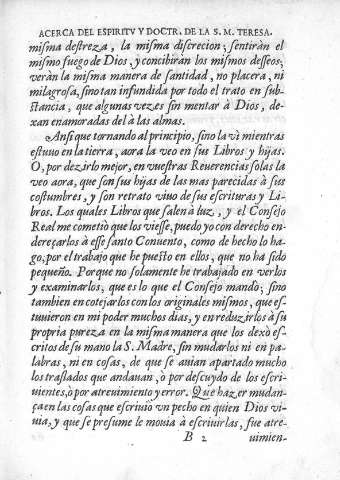 ACERCA DEL ESPIRITV Y DOCTR. DE LA S. M. TERESA.
miſma deſtreza, la miſma diſcrecion; ſentiràn el
miſmo fuego de Dios, y concibiràn los miſmos deſſeos;
veràn la miſma manera de ſantidad, no placera, ni
milagroſa, ſino tan infundida por todo el trato en ſub-
ſtancia, que algunas vezes ſin mentar à Dios, de-
xan enamoradas del à las almas.
Anſi que tornando al principio, ſino la vi mientras
eſtuuo en la tierra, aora la veo en ſus Libros y hijas.
O, por dezirlo mejor, en vueſtras Reuerencias ſolas la
veo aora, que ſon ſus hijas de las mas parecidas à ſus
coſtumbres, y ſon retrato viuo de ſus eſcrituras y Li-
bros. Los quales Libros que ſalen à luz, y el Conſejo
Real me cometiò que los vieſſe, puedo yo con derecho en-
dereçarlos à eſſe ſanto Conuento, como de hecho lo ha-
go, por el trabajo que he pueſto en ellos, que no ha ſido
pequeño. Porque no ſolamente he trabajado en verlos
y examinarlos, que es lo que el Conſejo mandò; ſino
tambien en cotejarlos con los originales miſmos, que eſ-
tuuieron en mi poder muchos dias, y en reduzirlos à ſu
propria pureza en la miſma manera que los dexò eſ-
critos de ſu mano la S. Madre, ſin mudarlos ni en pa-
labras, ni en coſas, de que ſe auian apartado mucho
los traſlados que andauan, ò por deſcuydo de los eſcri-
uientes, ò por atreuimiento y error. Que hazer mudan-
ça en las coſas que eſcriuiò vn pecho en quien Dios vi-
uia, y que ſe preſume le mouia à eſcriuirlas, fue atre-
B 2 uimien-